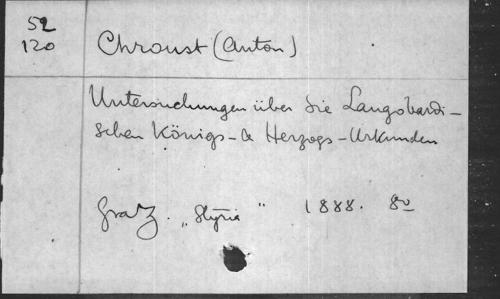 52
120
Chroust (Anton)
Untersuchungen über die Langobardi-
schen Königs- & Herzogs-Urkunden
Graz. „Styria“ 1888. 8º